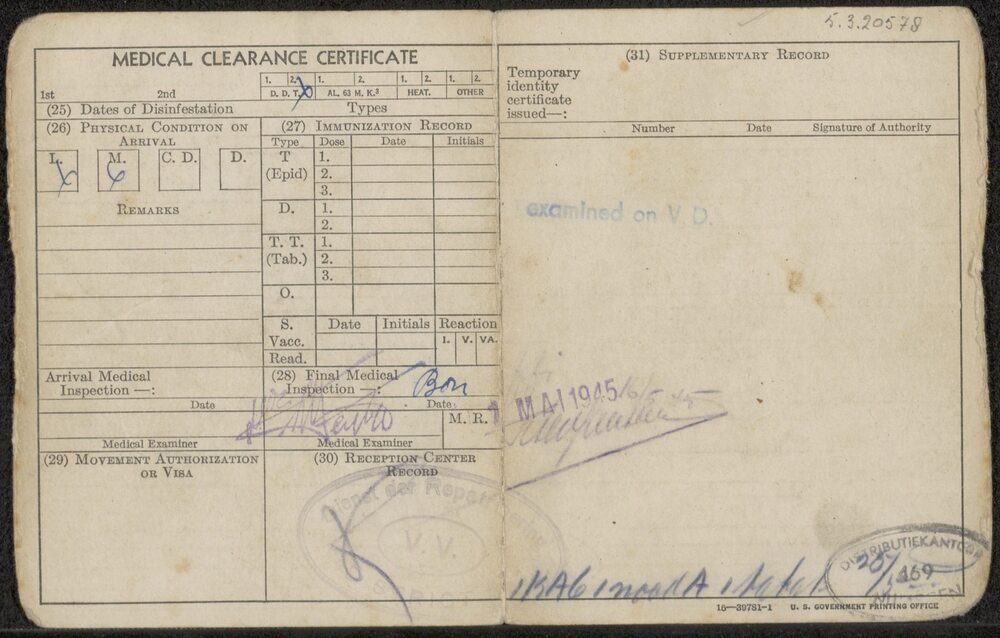 5.3.20578
MEDICAL CLEARANCE CERTIFICATE
1st 2nd
1. 2. 1. 2. 1. 2. 1. 2.
D. D. T. AL. 63 M. K.³ HEAT. OTHER
(25) Dates of Disinfestation Types
(26) PHYSICAL CONDITION ON
ARRIVAL
L. M. C. D. D.
REMARKS
(27) IMMUNIZATION RECORD
Type Dose Date Initials
T 1.
(Epid) 2.
3.
D. 1.
2.
T. T. 1.
(Tab.) 2.
3.
O.
S. Date Initials Reaction
Vacc. I. V. VA.
Read.
Arrival Medical
Inspection —:
Date
Medical Examiner
(28) Final Medical
Inspection —: Bon
Date:
M. R.
Medical Examiner
(29) MOVEMENT AUTHORIZATION
OR VISA
(30) RECEPTION CENTER
RECORD
Dienst der
V. V.
(31) SUPPLEMENTARY RECORD
Temporary
identity
certificate
issued—:
Number Date Signature of Authority
examined on V D.
MAI 1945
DISTRIBUTIEKANTOOR
469
16—39781-1 U. S. GOVERNMENT PRINTING OFFICE